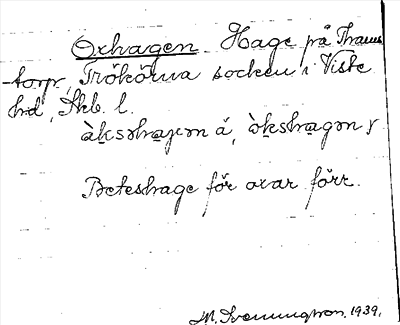 Oxhagen. Hage på Thams
torp, Trökörna socken i Viste
hd, Skb. l.
àksəhagən á, òkshagən y
Beteshage för oxar förr.
M. Svenungsson. 1939.